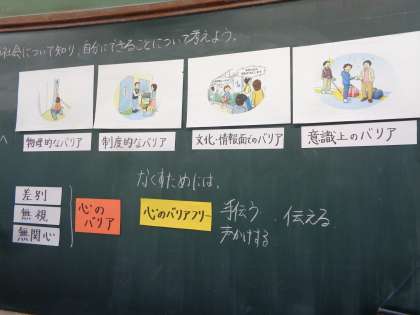 社会について知り、自分にできることについて考えよう。
物理的なバリア
制度的なバリア
文化・情報面でのバリア
意識上のバリア
なくすためには、
差別
無視
無関心
心の
バリア
心のバリアフリー
手伝う
声かけする
伝える